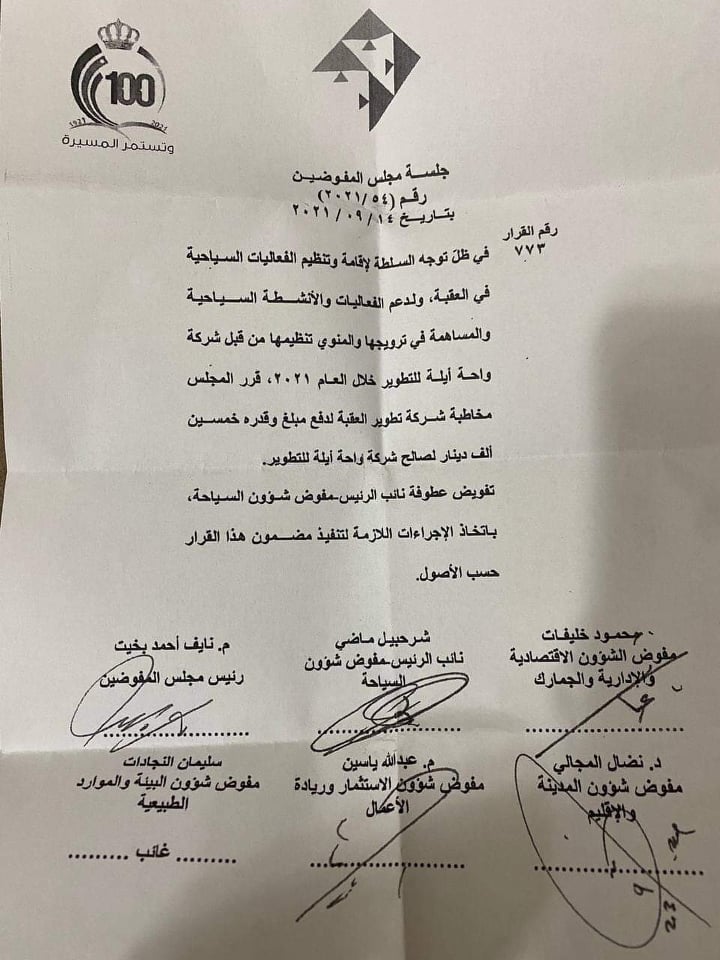 100
1921 2021
وتستمر المسيرة
جلسة مجلس المفوضين
رقم (٢٠٢١/٥٤)
بتاريخ ٢٠٢١/٠٩/١٤
رقم القرار
٧٧٣
في ظل توجه السلطة لإقامة وتنظيم الفعاليات السياحية
في العقبة، ولدعم الفعاليات والأنشطة السياحية
والمساهمة في ترويجها والمنوي تنظيمها من قبل شركة
واحة أيلة للتطوير خلال العام ٢٠٢١، قرر المجلس
مخاطبة شركة تطوير العقبة لدفع مبلغ وقدره خمسين
ألف دينار لصالح شركة واحة أيلة للتطوير.
تفويض عطوفة نائب الرئيس-مفوض شؤون السياحة،
باتخاذ الإجراءات اللازمة لتنفيذ مضمون هذا القرار
حسب الأصول.
محمود خليفات
مفوض الشؤون الاقتصادية
والإدارية والجمارك
شرحبيل ماضي
نائب الرئيس-مفوض شؤون
السياحة
م. نايف أحمد بخيت
رئيس مجلس المفوضين
د. نضال المجالي
مفوض شؤون المدينة
والإقليم
م. عبدالله ياسين
مفوض شؤون الاستثمار وريادة
الأعمال
سليمان النجادات
مفوض شؤون البيئة والموارد
الطبيعية
......... غائب .........
23 9